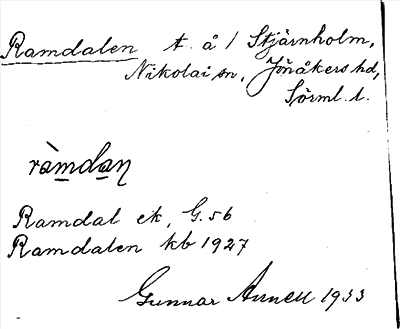 Ramdalen t. å / Stjärnholm,
Nikolai sn, Jönåkers hd,
Sörml. l.
ràmdaɳ
Ramdal ek, G. 56
Ramdalen kb 1927
Gunnar Annell 1933